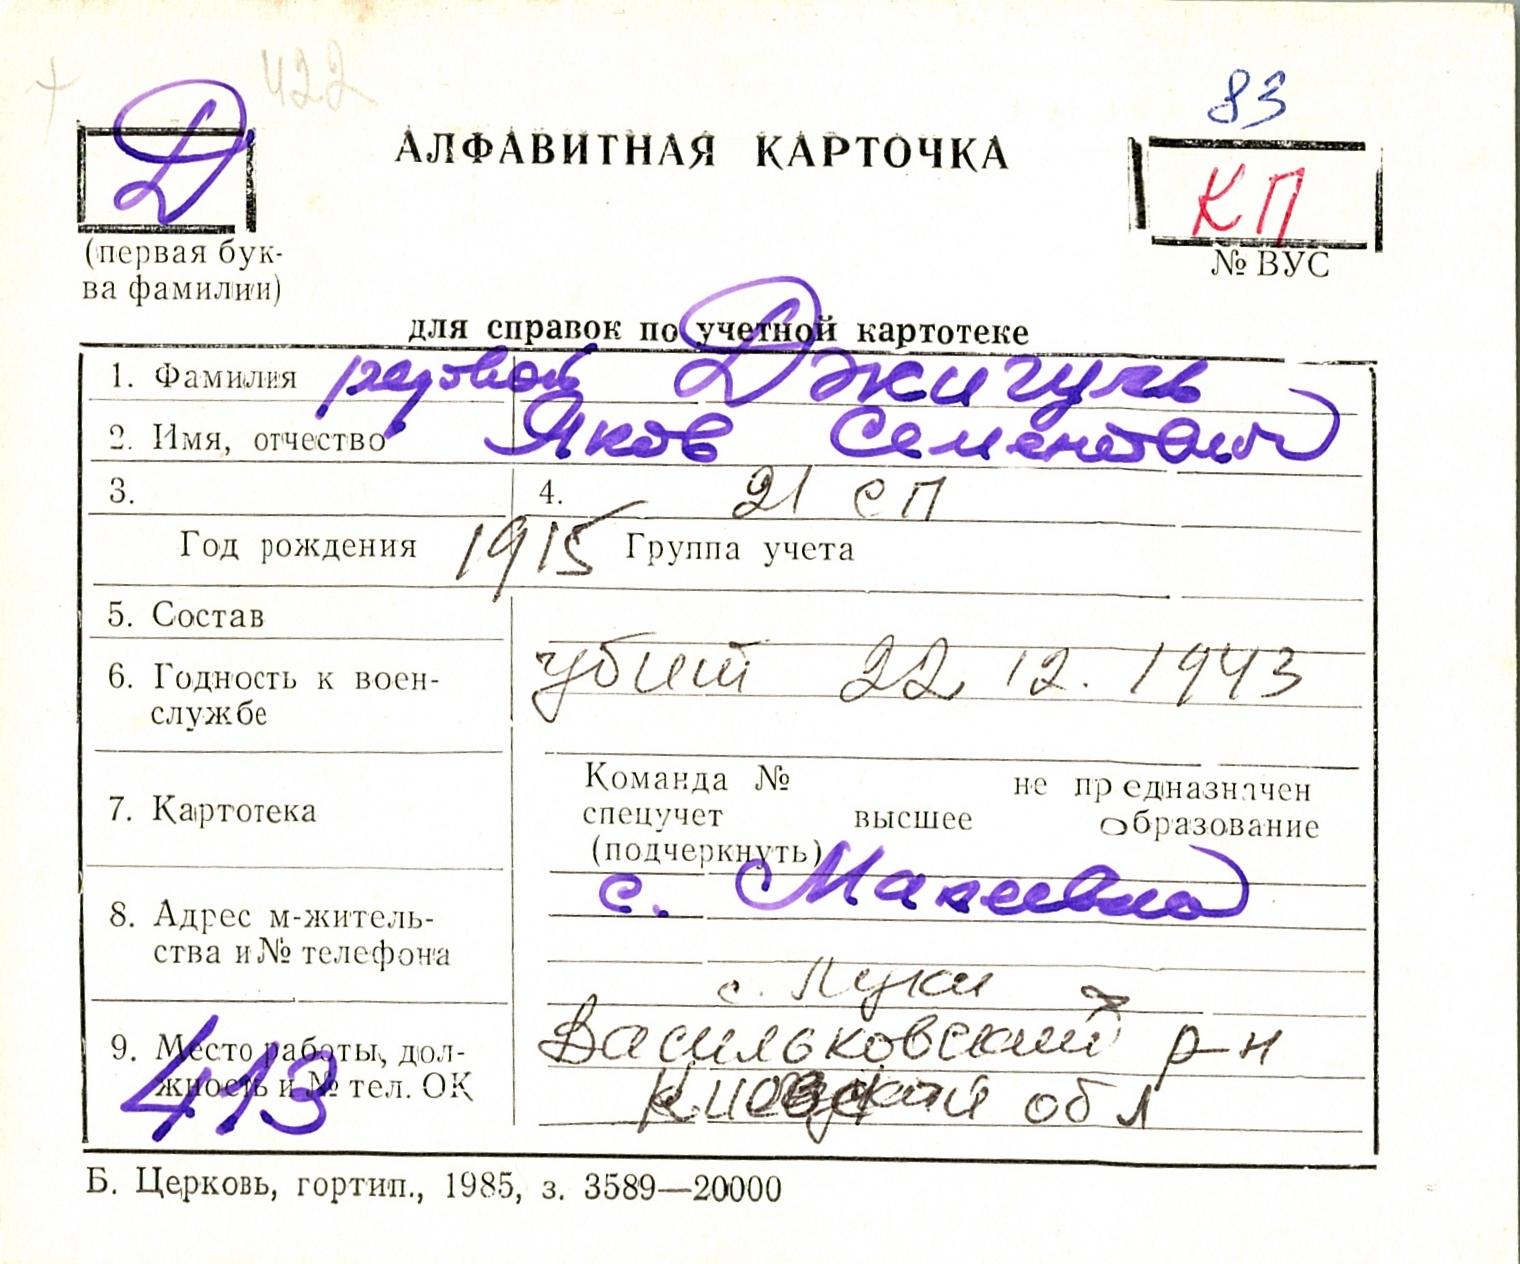 422
83
Д
АЛФАВИТНАЯ КАРТОЧКА
КП
(первая бук-
ва фамилии)
№ ВУС
для справок по учетной картотеке
1. Фамилия рядовой Джигуль
2. Имя, отчество Яков Семенович
3.
4. 21 СП
Год рождения 1915
Группа учета
5. Состав
6. Годность к воен-
службе
убит 22 12. 1943
7. Картотека
Команда № не предназначен
спецучет высшее образование
(подчеркнуть)
8. Адрес м-житель-
ства и № телефона
с. Макеевка
с. Луки
9. Место работы, дол-
жность и № тел. ОК
413
Васильковский р-н
Киевский обл
Б. Церковь, гортип., 1985, з. 3589—20000